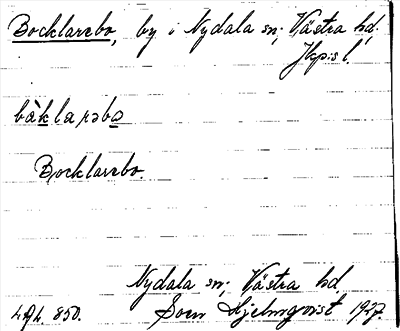 Bocklarebo, by i Nydala sn; Västra hd,
Jkp:s l.
bòklarəbo
Bocklarebo.
Nydala sn; Västra hd.
Sven Hjelmqvist 1927.